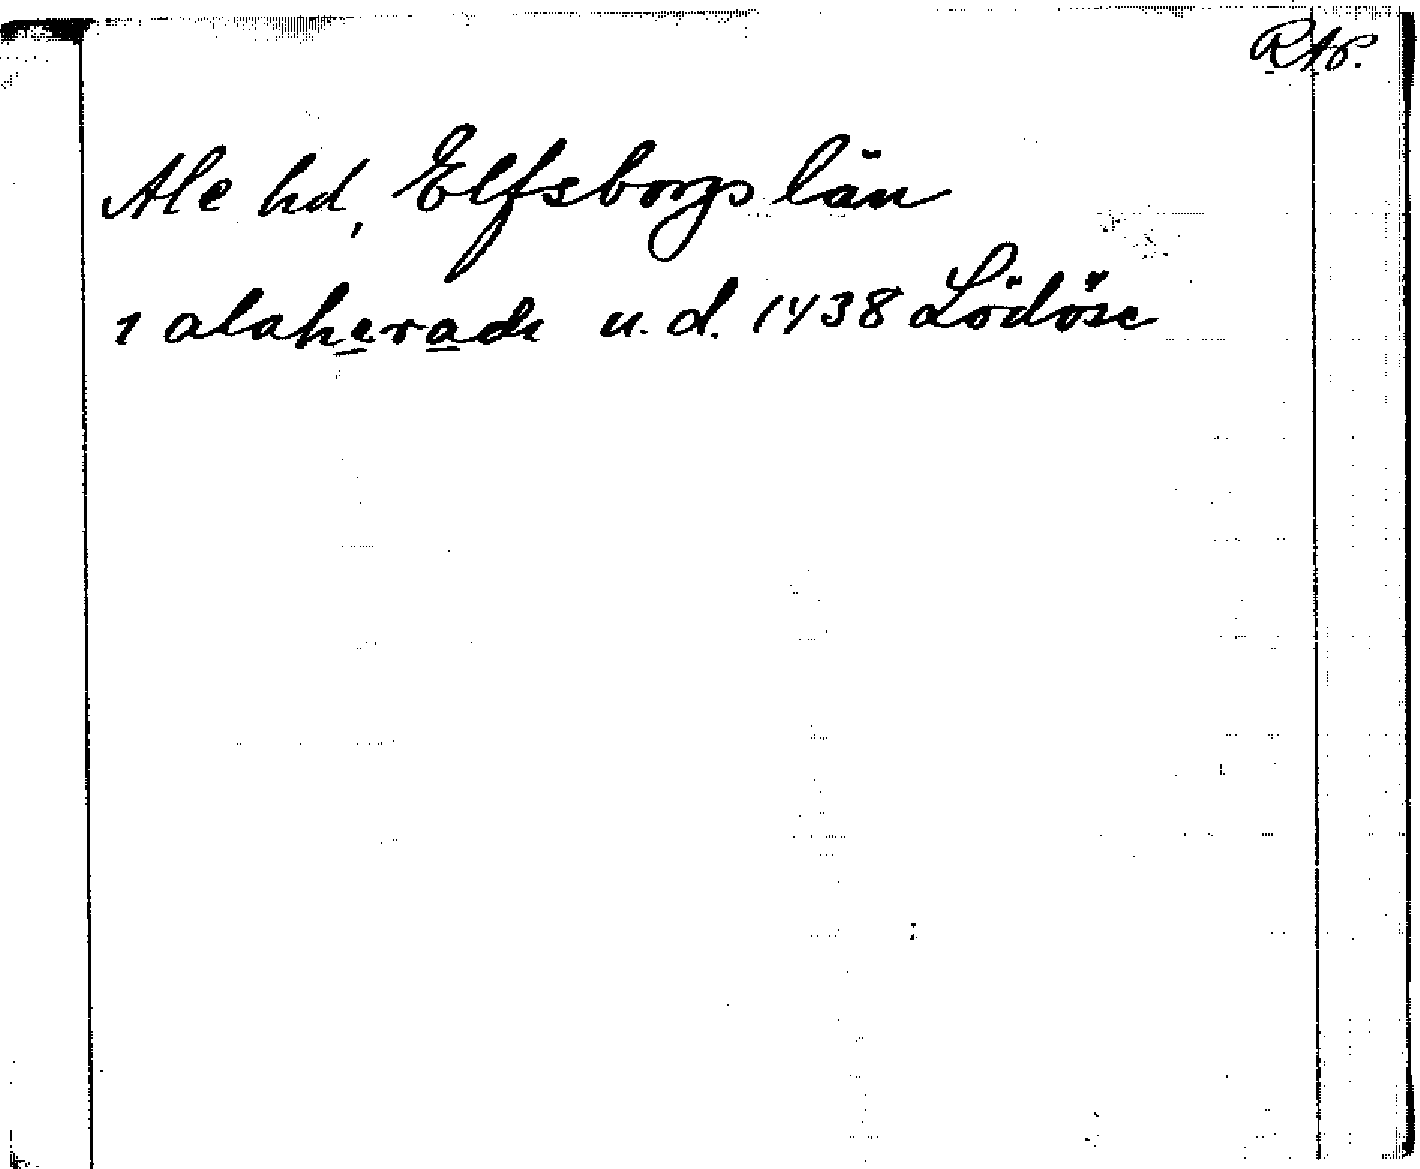 RAp.
Ale hd, Elfsborgs län
1 alaheradh u.d. 1438 Lödöse